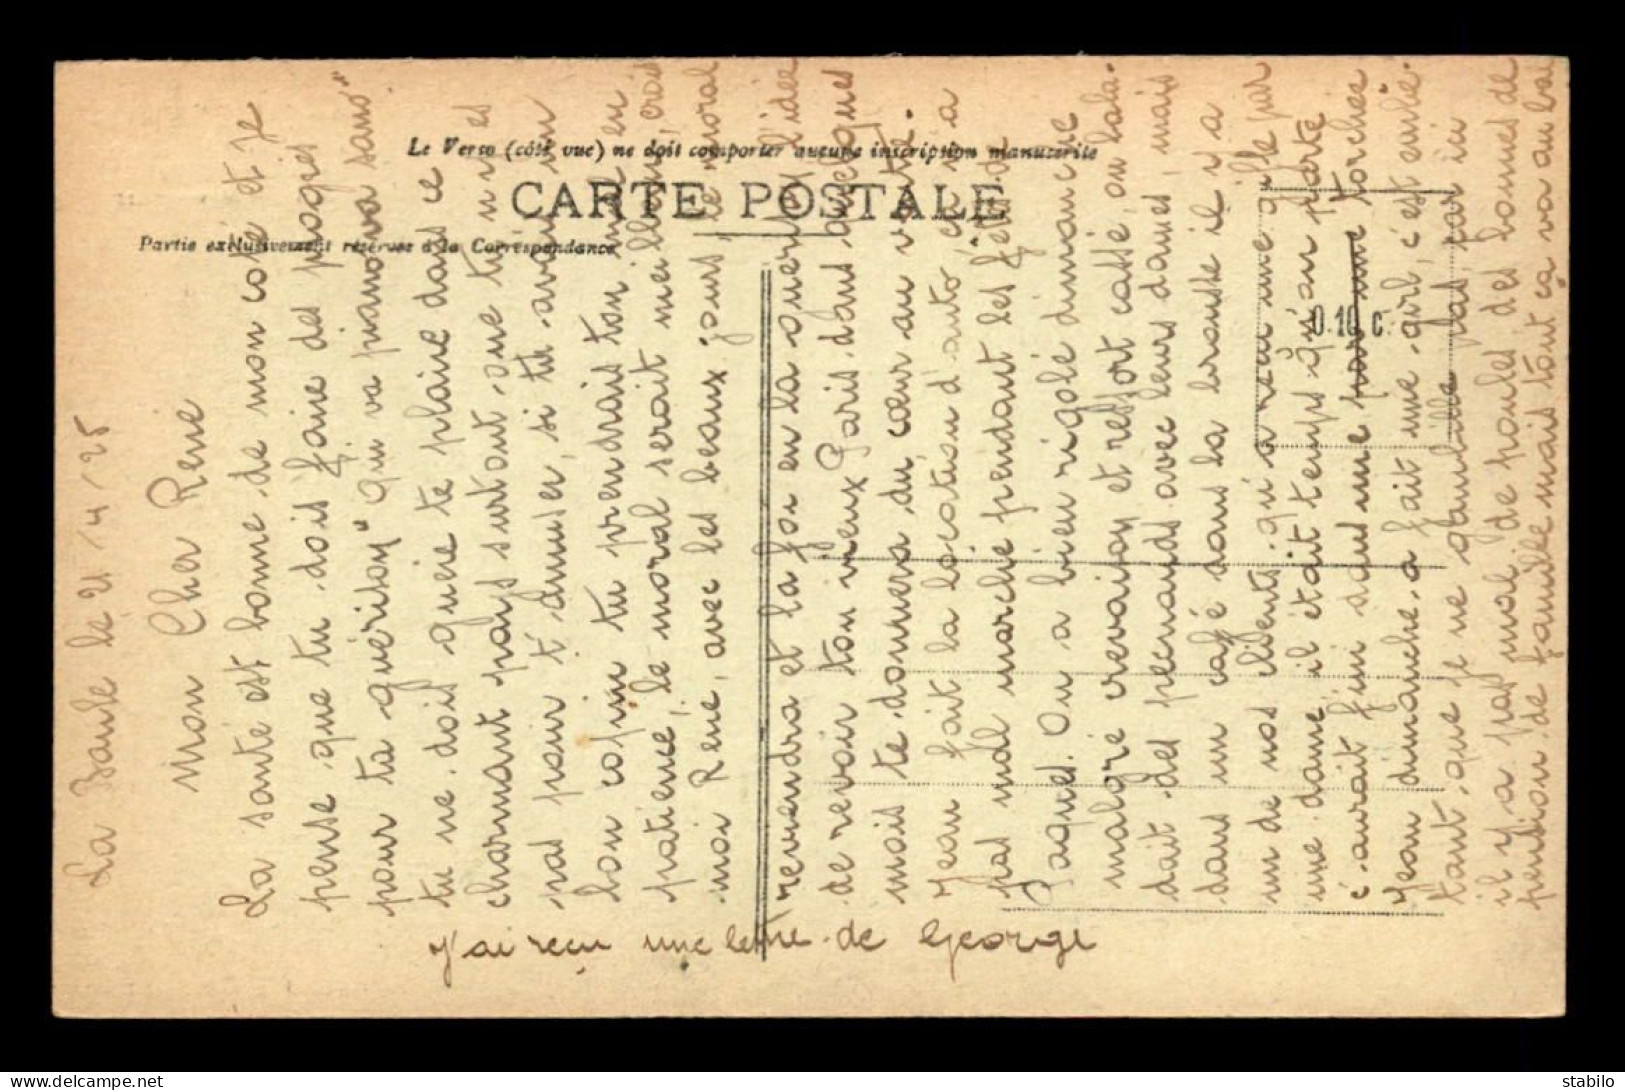 Le Verso (côté vue) ne doit comporter aucune inscription manuscrite
CARTE POSTALE
Partie exclusivement réservée à la Correspondance
0.10 c.
La Baule le 21/4/25
Mon Cher René
La santé est bonne de mon coté et je
pense que tu dois faire des progrès
pour ta guérison "Qui va piano va sano"
tu ne dois guère te plaire dans ce
charmant pays surtout que tu n'y es
pas pour t'amuser, si tu avais un
bon copin tu prendrais ton mal en
patience, le moral serait meilleur, crois
moi René, avec les beaux jours le moral
reviendra et la foi en la guérison l'idée
de revoir ton vieux Paris dans quelques
mois te donnera du cœur au ventre.
Jean fait la location d'auto ça n'a
pas mal marché pendant les fêtes de
Paques. On a bien rigolé dimanche
malgré crevaison et ressort cassé, on bala-
dait des pecnauds avec leurs dames, mais
dans un café dans la brousse il y a
un de nos clients qui a reçu une gifle par
une dame il était temps qu'on parte
ç'aurait fini dans une torchée
Jean dimanche a fait une, c'est
tant que je ne gambille pas par ici
il y a pas mal de poules des bonnes de
pension de famille mais tout ça va au bal
J'ai reçu une lettre de George